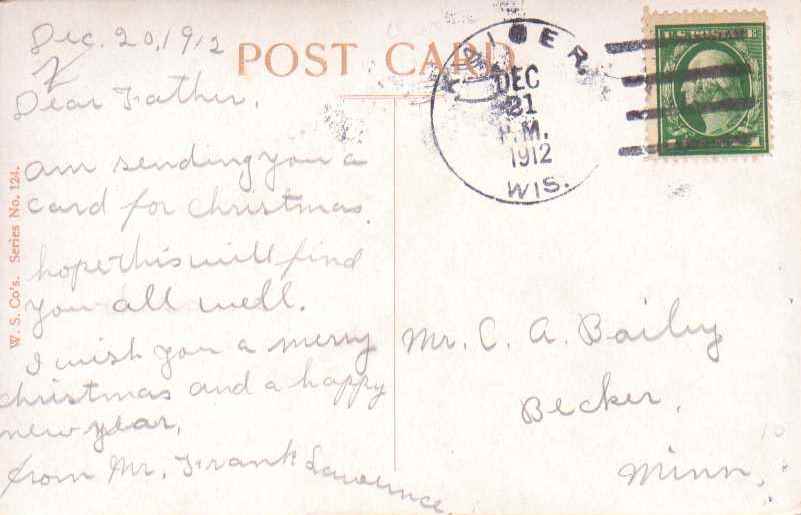 Dec. 20, 1912
POST CARD
Dear Father,
am sending you a
card for christmas.
hope this will find
you all well.
I wish you a merry
christmas and a happy
new year.
from Mr. Frank Lawrence
W. S. Co's. Series No. 124.
DEC
21
P.M.
1912
WIS.
U.S. POSTAGE
Mr. C. A. Bailey
Becker,
Minn.